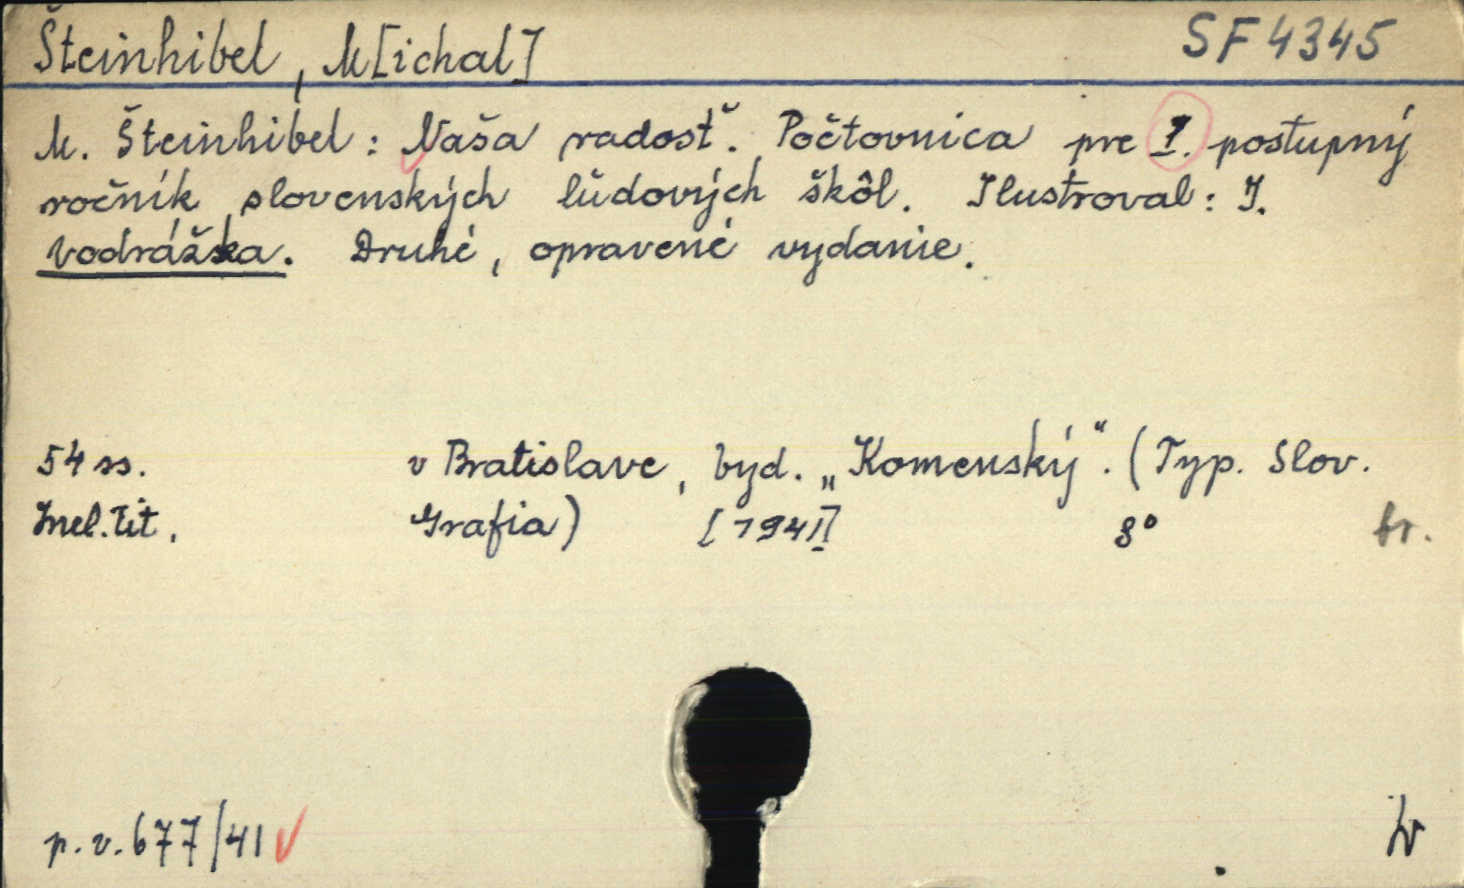 Šteinhibel, M[ichal] SF 4345
M. Šteinhibel: Naša radosť. Počtovnica pre I. postupný
ročník slovenských ľudových škôl. Ilustroval: I.
Vodrážka. Druhé, opravené vydanie.
54 ss. v Bratislave, byd. „Komenský“. (Typ. Slov.
Inel. tit. Grafia) [1941] 8° br.
p.v. 677/41